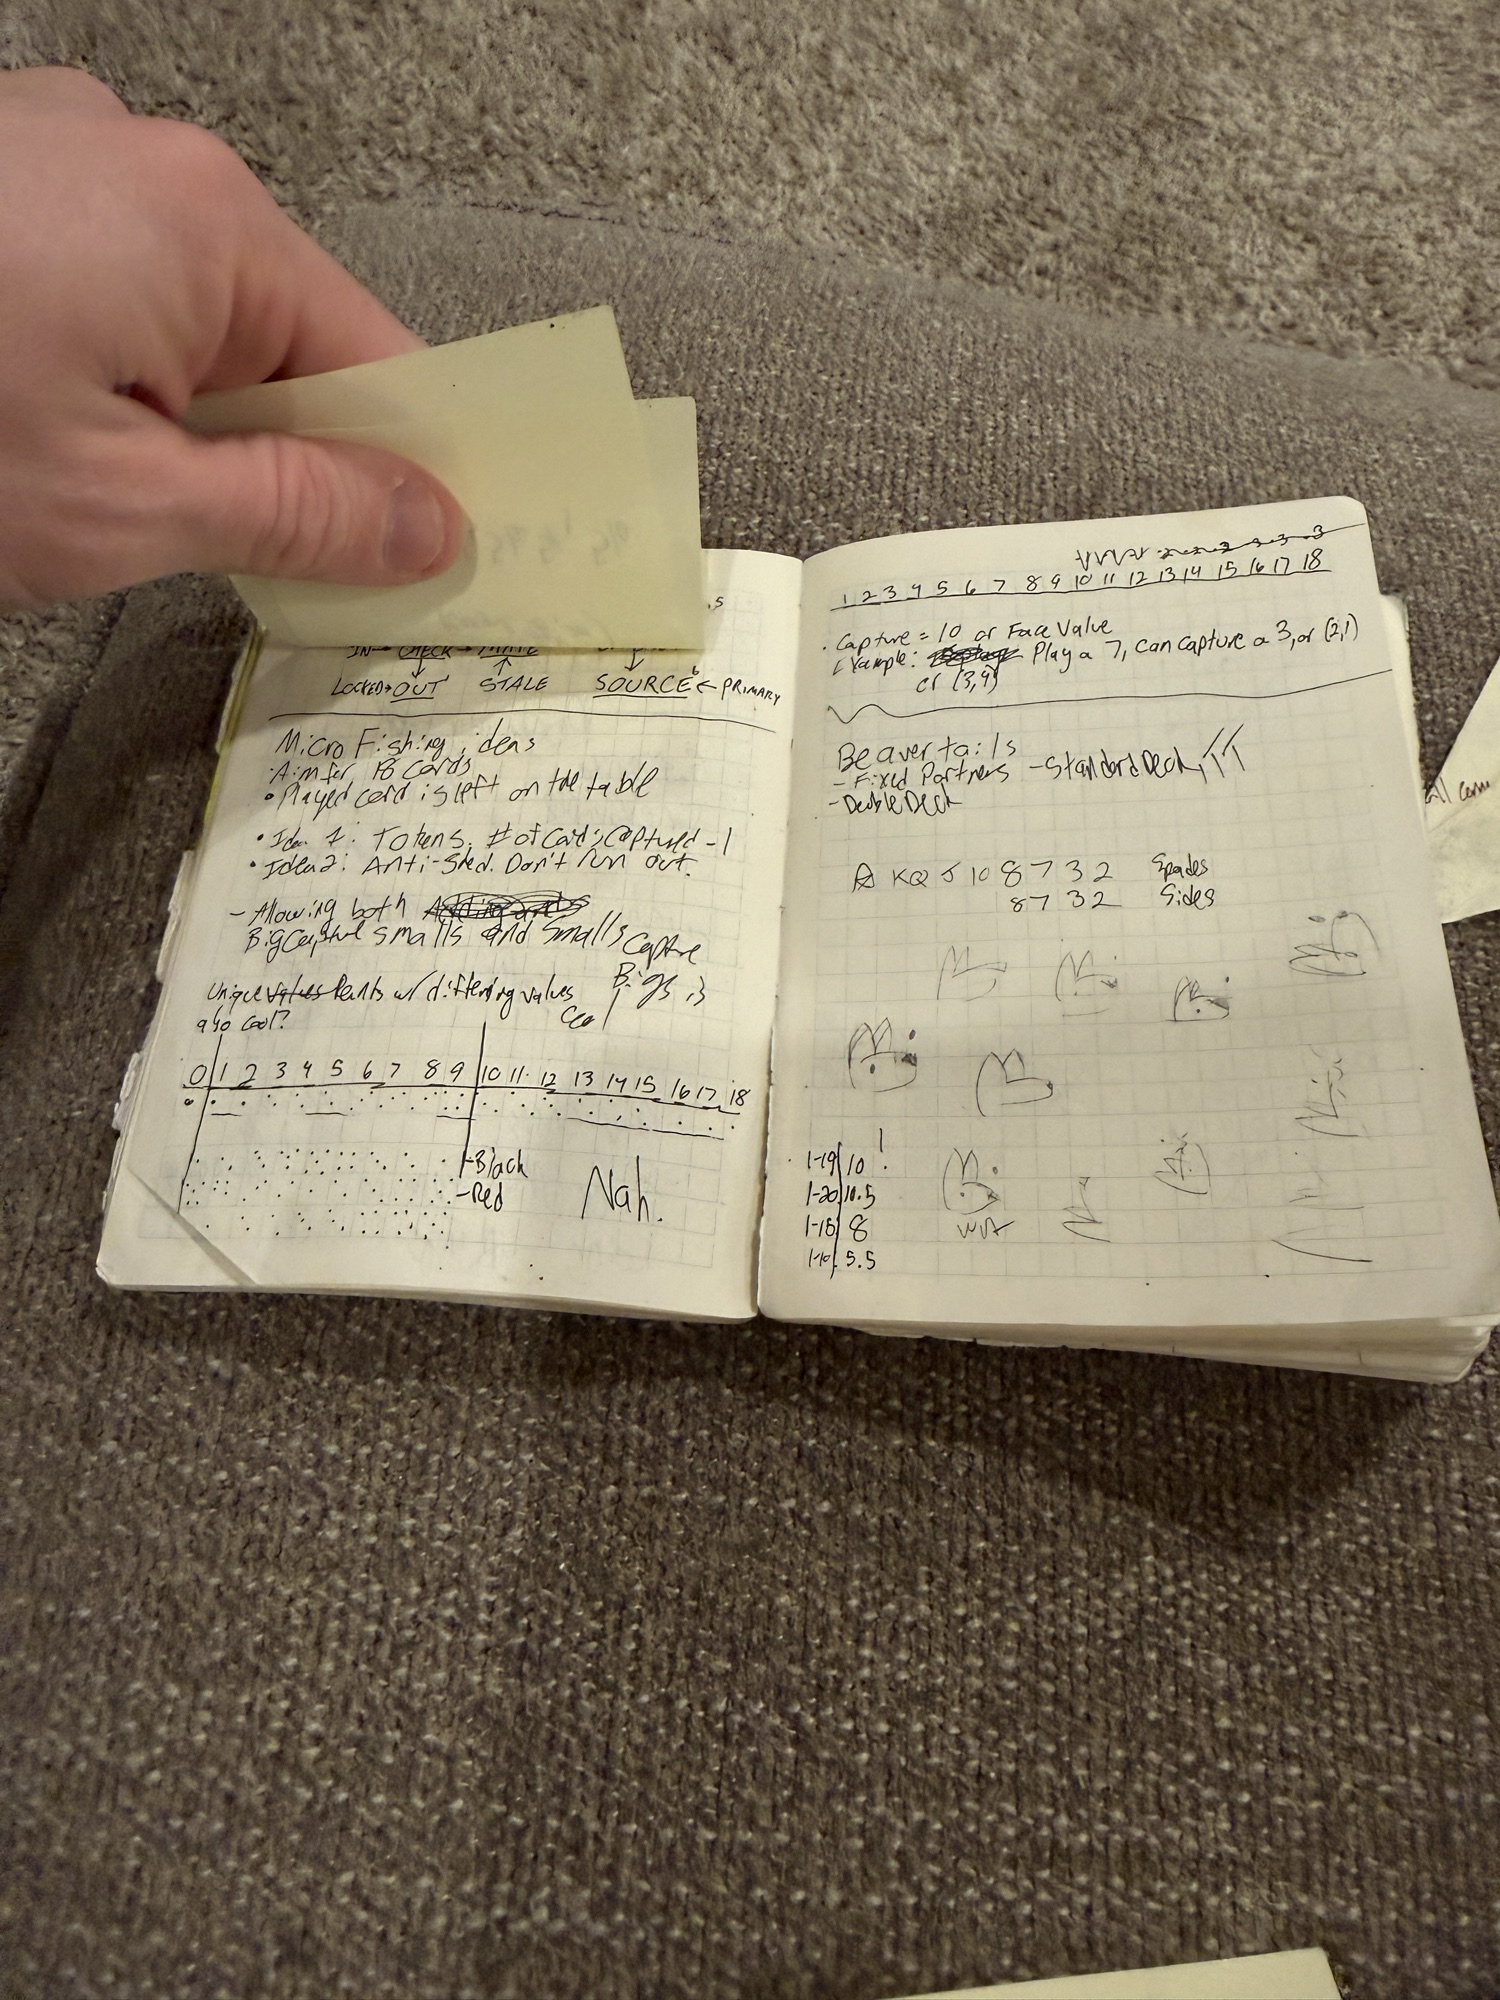 IN → CHECK → MATE
LOCKED → OUT STALE SOURCE ← PRIMARY
Micro Fishing ideas
· Aim for 18 cards
• Played card is left on the table
• Idea 1: Tokens. # of cards captured -1
• Idea 2: Anti-shed. Don't run out.
- Allowing both
Big capture smalls and smalls capture
Bigs is
cool
Unique values Points w/ differing values
also cool?
0 1 2 3 4 5 6 7 8 9 10 11 12 13 14 15 16 17 18
-Black
-Red
Nah.
2 2 2 3 3 3
1 2 3 4 5 6 7 8 9 10 11 12 13 14 15 16 17 18
· Capture = 10 or Face Value
Example: Play a 7, can capture a 3, or (2,1)
or (3,4)
Beavertails
- Fixed Partners - Standard Deck,
- Double Deck
A K Q J 10 8 7 3 2 Spades
8 7 3 2 Sides
1-19 10 !
1-20 10.5
1-15 8
1-10 5.5